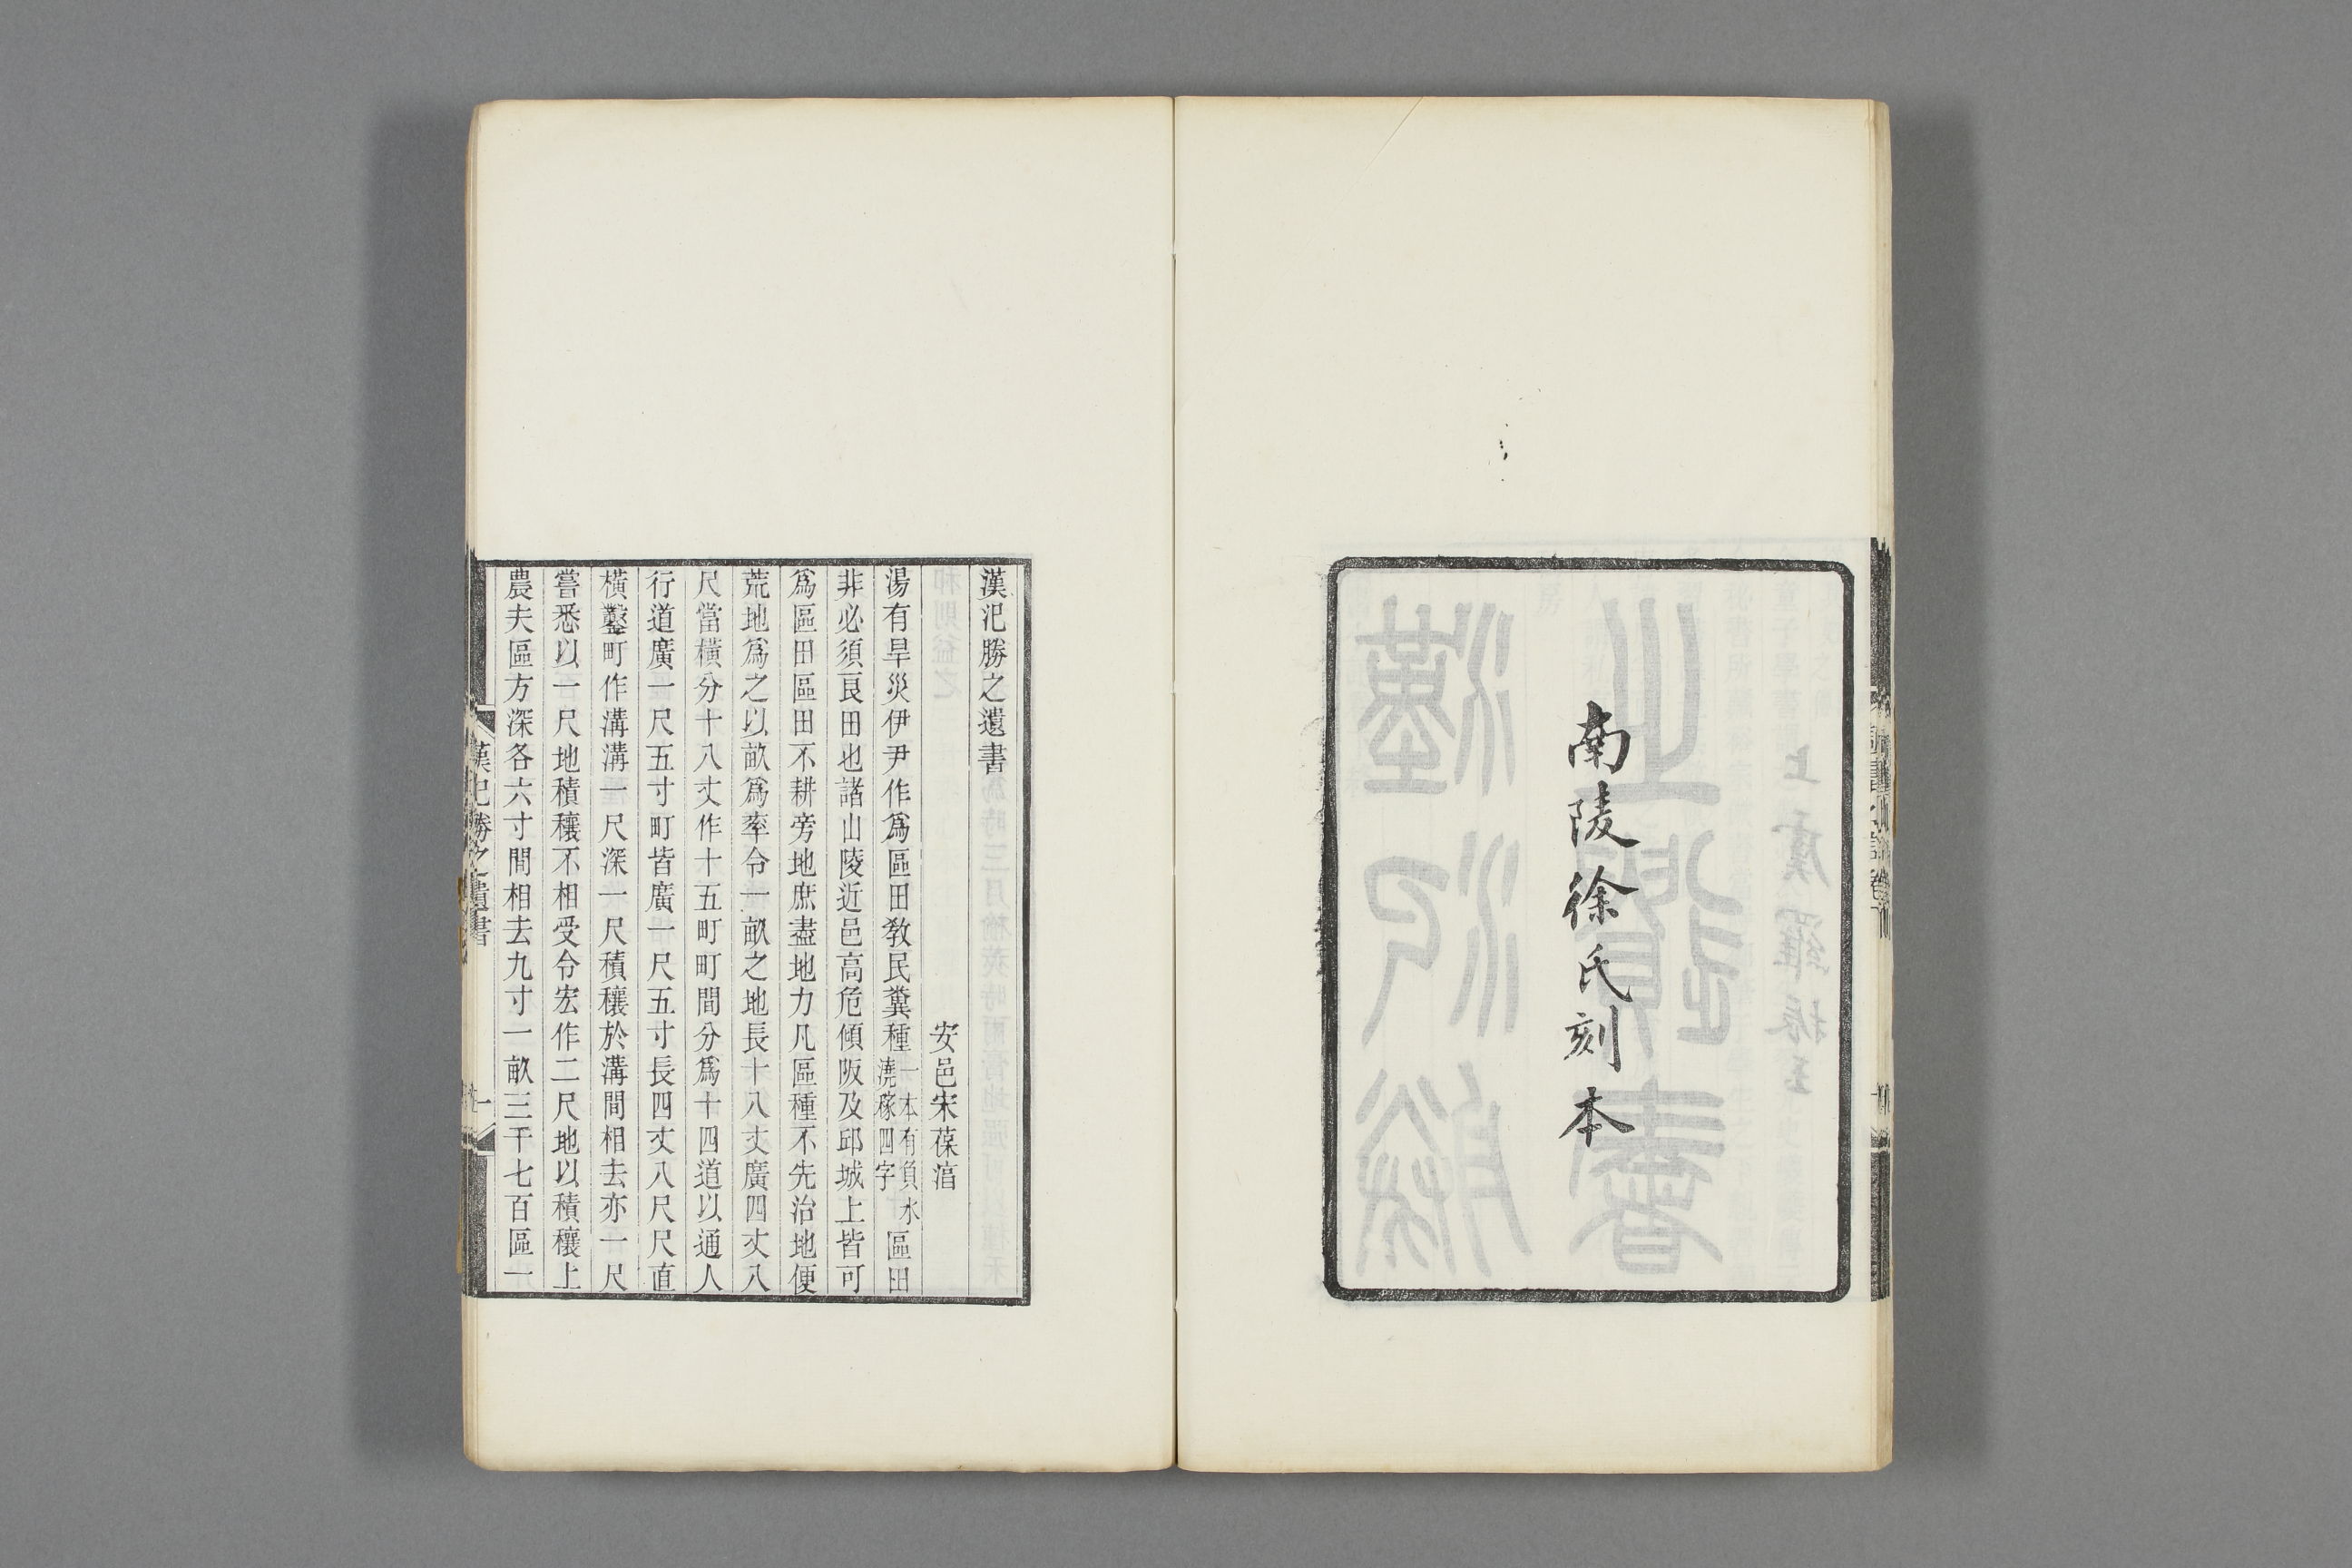 南陵徐氏刻本
漢氾勝之遺書
安邑宋葆淳
湯有旱災伊尹作爲區田敎民糞種一本有負水澆稼四字區田
非必須良田也諸山陵近邑高危傾阪及邱城上皆可
爲區田區田不耕旁地庶盡地力凡區種不先治地便
荒地爲之以畝爲率令一畝之地長十八丈廣四丈八
尺當橫分十八丈作十五町町間分爲十四道以通人
行道廣一尺五寸町皆廣一尺五寸長四丈八尺尺直
橫鑿町作溝溝一尺深一尺積穰於溝間相去亦一尺
嘗悉以一尺地積穰不相受令宏作二尺地以積穰上
農夫區方深各六寸間相去九寸一畝三千七百區一
漢氾勝之遺書
一